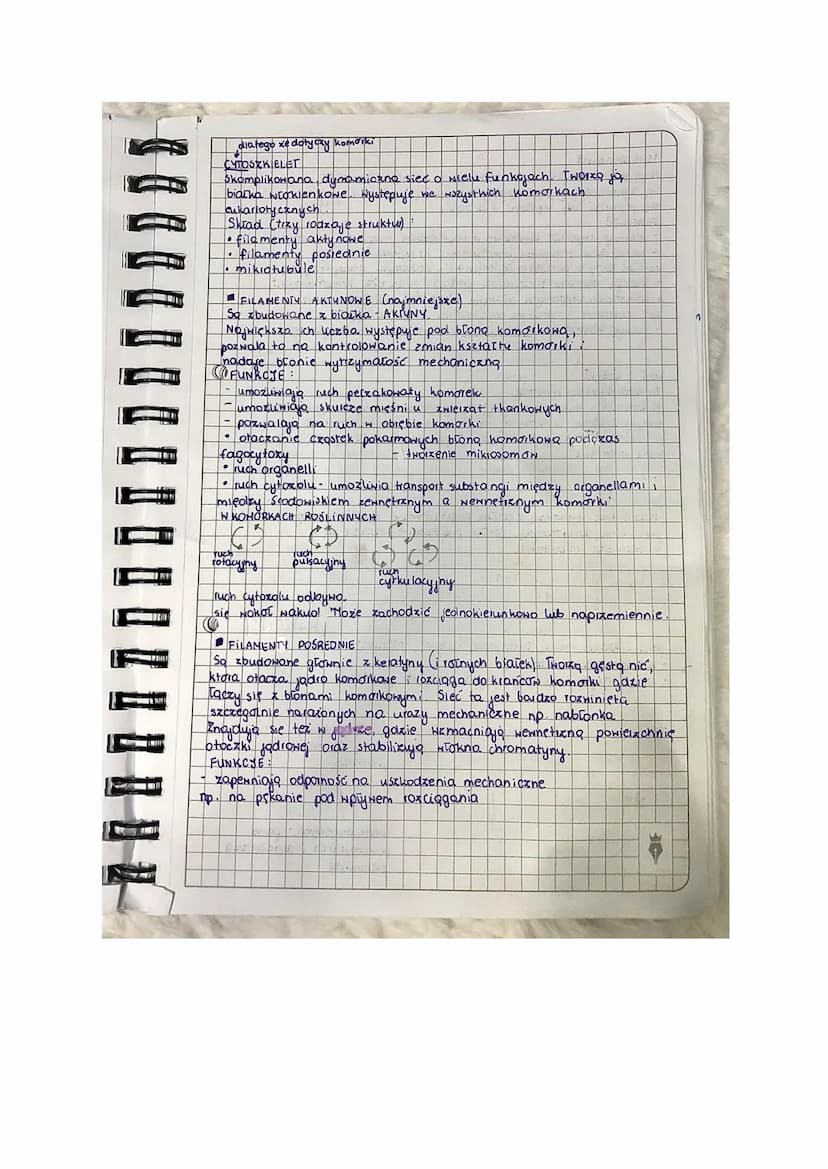 dlatego że dotyczy komórki
CYTOSZKIELET
Skomplikowana, dynamiczna sieć o wielu funkcjach. Tworzą ją
białka włókienkowe. Występuje we wszystkich komórkach
eukariotycznych.
Skład (trzy rodzaje struktur):
• filamenty aktynowe
• filamenty pośrednie
• mikrotubule
■ FILAMENTY AKTYNOWE (najmniejsze)
Są zbudowane z białka - AKTYNY.
Największa ich liczba występuje pod błoną komórkową,
pozwala to na kontrolowanie zmian kształtu komórki i
nadaje błonie wytrzymałość mechaniczną
FUNKCJE:
- umożliwiają ruch pełzakowaty komórek
- umożliwiają skurcze mięśni u zwierząt tkankowych
- pozwalają na ruch w obrębie komórki
• otaczanie cząstek pokarmowych błoną komórkową podczas
fagocytozy - tworzenie mikrosomów
• ruch organelli
• ruch cytozolu - umożliwia transport substancji między organellami i
między środowiskiem zewnętrznym a wewnętrznym komórki
W KOMÓRKACH ROŚLINNYCH
ruch rotacyjny ruch pulsacyjny ruch cyrkulacyjny
ruch cytozolu odbywa
się wokół wakuol Może zachodzić jednokierunkowo lub naprzemiennie.
■ FILAMENTY POŚREDNIE
Są zbudowane głównie z keratyny (i różnych białek). Tworzą gęstą nić,
która otacza jądro komórkowe i rozciąga do krańców komórki gdzie
łączy się z błonami komórkowymi. Sieć ta jest bardzo rozwinięta
szczególnie narażonych na urazy mechaniczne np. nabłonka
Znajdują się też w jądrze, gdzie wzmacniają wewnętrzną powierzchnię
otoczki jądrowej oraz stabilizują włókna chromatyny.
FUNKCJE:
- zapewniają odporność na uszkodzenia mechaniczne
np. na pękanie pod wpływem rozciągania